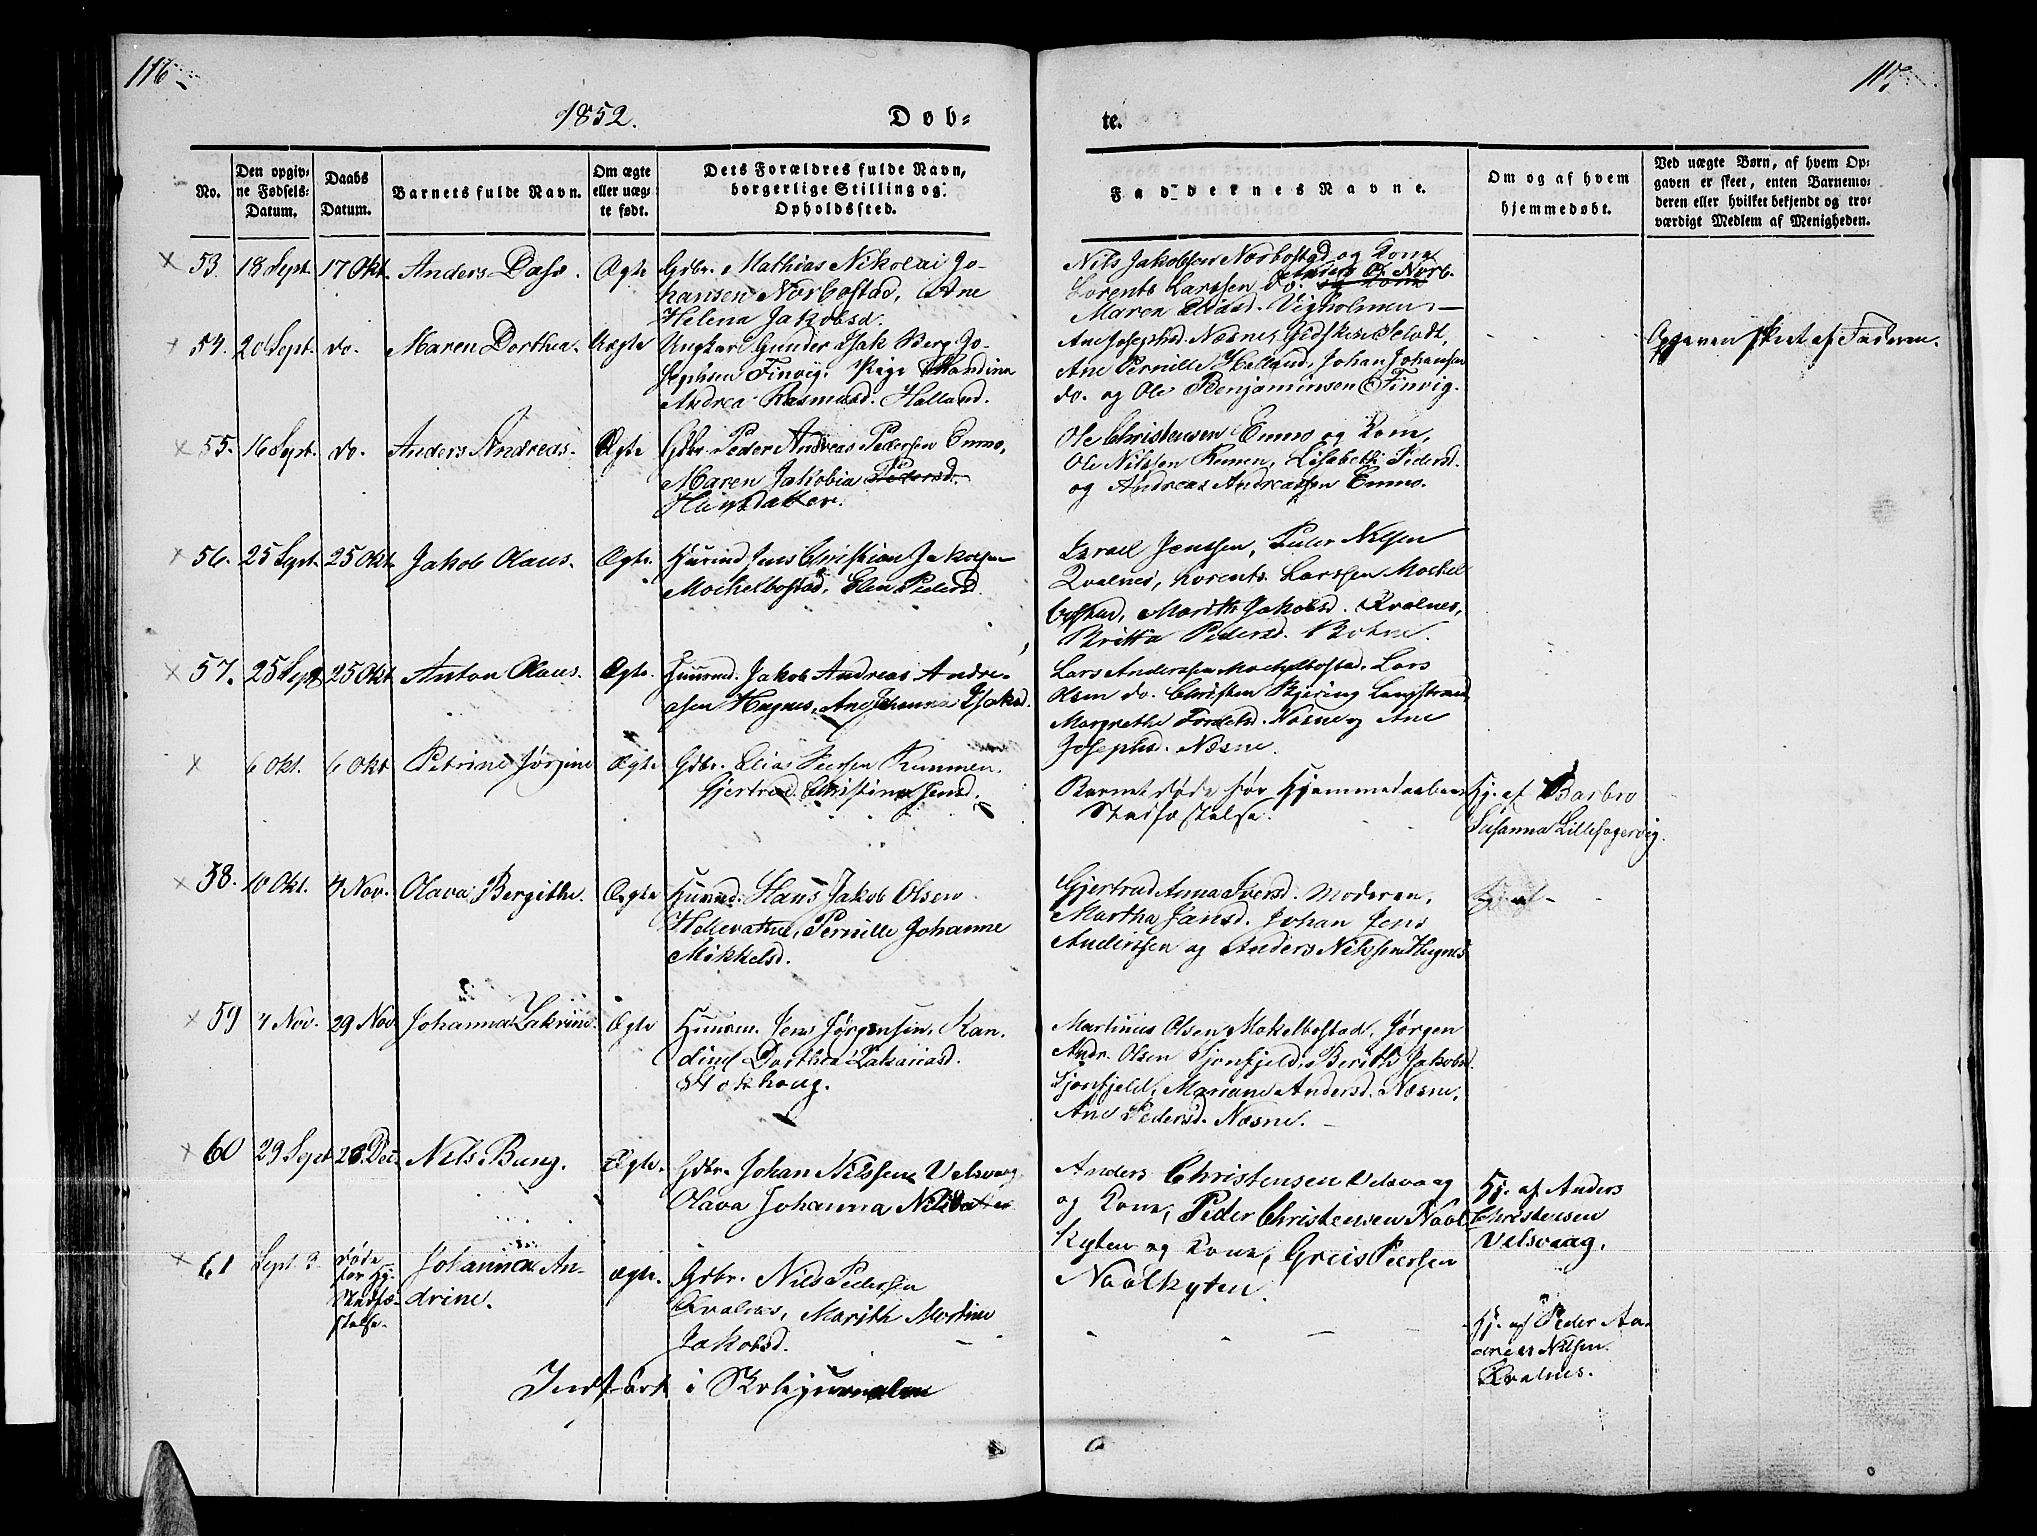 116
117.
1852.
Døb-
te.
No.
Den opgiv-
ne Fødsels-
Datum.
Daabs
Datum.
Barnets fulde Navn.
Om ægte
eller uæg-
te født.
Dets Forældres fulde Navn,
borgerlige Stilling og
Opholdssted.
Faddernes Navne.
Om og af hvem
hjemmedøbt.
Ved uægte Børn, af hvem Op-
gaven er skeet, enten Barnemo-
deren eller hvilket bekjendt og tro-
værdigt Medlem af Menigheden.
53. 18 Sept. 17 Okt. Anders Dass. Ægte Gdbr. Mathias Nikolai Jo-
hansen Norbostad, Ane
Helena Jakobsd.
Nils Jakobsen Norbostad og Kone
Lorents Larssen do. Anders O. Norb.
Maren Eliasd. Vigholmen.
54. 20 Sept. do. Maren Dorthea. Uægte Ungkarl Gunder Isak Berg Jo-
sephsen Finvig. Pige Handina
Andrea Rasmusd. Halland.
Ane Josephsd. Næsne,
Ane Pernille Halland, Johan Johansen
do. og Ole Benjaminsen Finvig.
Opgaven skeet af Faderen.
55. 16 Sept. do. Anders Andreas. Ægte Gdbr. Peder Andreas Pedersen Emmo,
Maren Jakobia Pedersd.
Hansdatter.
Ole Christensen Emmo og Kone,
Ole Nilssen Remen, Lisabeth Pedersd.
og Andreas Andreassen Emmo.
56. 25 Sept. 25 Okt. Jakob Olaus. Ægte. Huusmd. Jens Christian Jakobsen
Mockelbostad, Elen Pedersd.
Israel Jenssen, Peder Nilsen
Kvalnes, Lorents Larssen Mockel
bostad, Marith Jakobsd. Kvalnes,
Britta Pedersd.
57. 25 Sept 25 Okt Anton Olaus. Ægte. Huusmd. Jakob Andreas Andre-
asen Hugnes, Ane Johanna Isaksd.
Lars Anderssen Mockelbostad. Lars
Olsen do. Christen Bjering Langstrand
Margrethe Næsne og Ane
Josephsd. Næsne.
6 Okt. 6 Okt Petrine Jørgine Ægte Gdbr. Elias Peersen Remmen.
Gjertrud Christina Jensd.
Barnet døde før Hjemmedaabens
Stadfæstelse.
Hj. af Barbro
Susanna Lillefagervig.
58. 10 Okt. 4 Nov. Olava Bergithe. Ægte Huusmd. Hans Jakob Olsen
Pernille Johanne
Mikkelsd.
Gjertrud Anna Iversd. Moderen,
Martha Jansd. Johan Jens
Anderssen og Anders Nilssen Hugnes
Hj. af
59 4 Nov. 29 Nov Johanna Zakrine. Ægte Huusm. Jens Jørgensen, Kan-
dine Dorthea Zakariasd.
Stokhoug.
Martinus Olsen Mokelbostad, Jørgen
Andr. Olsen Sjonfjeld, Berith Jakobsd.
Sjonfjeld, Mariane Andersd. Næsne,
Ane Pedersd. Næsne.
60 29 Sept 28. Dec. Nils Bung. Ægte. Gdbr. Johan Nilssen Velsvaag
Olava Johanna Nilsdatter
Anders Christensen Velsvaag
og Kone, Peder Christensen Naol
kyten og Kone, Greis Peersen
Naolkyten.
Hj. af Anders
Christensen
Velsvaag.
61 Sept 3 døde
før Hj.
Stadfæ-
stelse. Johanna An-
drine. ægte. Gdbr. Nils Pedersen
Kvalnes, Marith Martine
Jakobsd.
Hj. af Peder An-
dreas Nilsen
Kvalnes.
Indført i Skolejurnalen